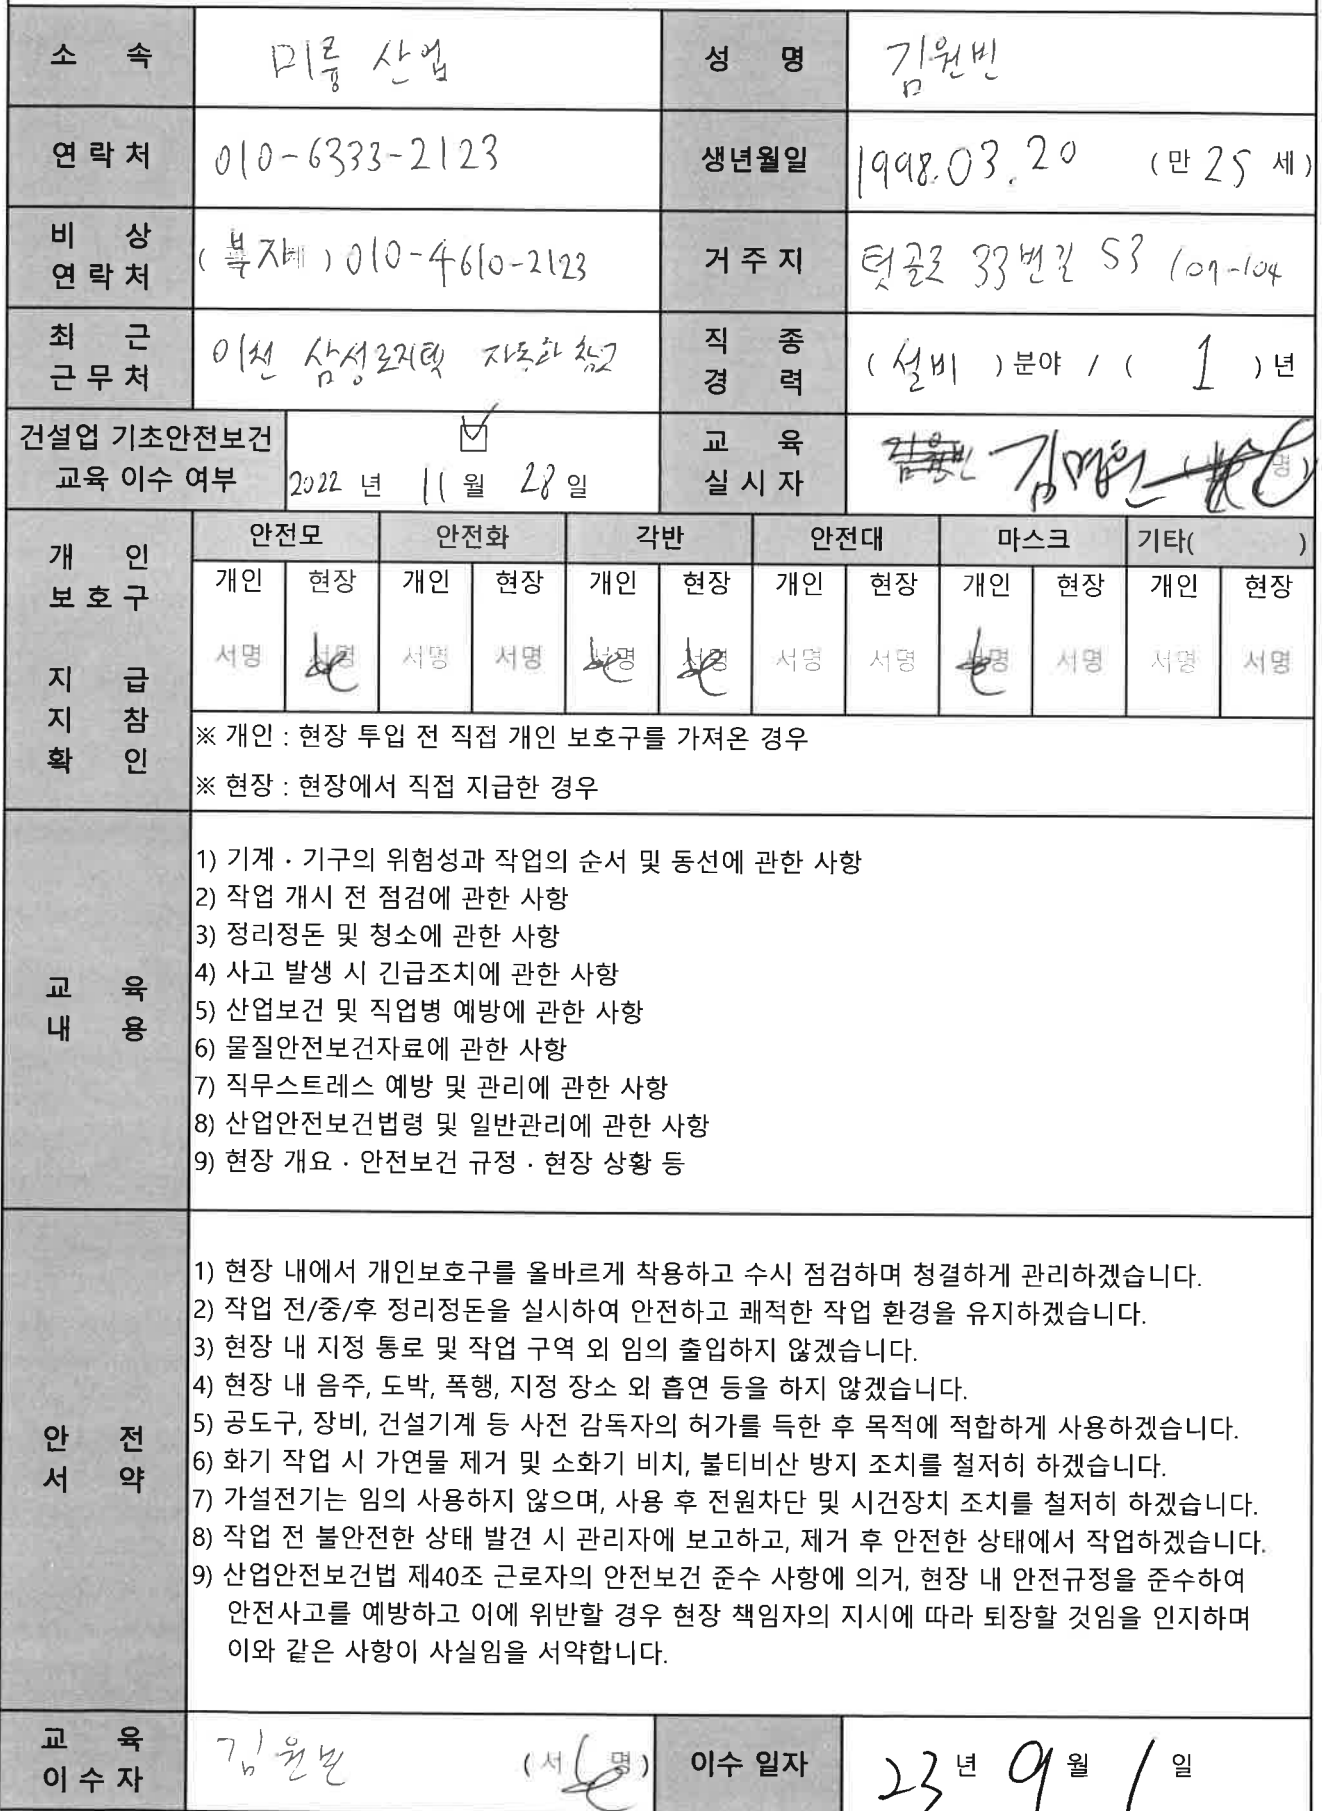 소 속 미륭 산업 성 명 김원빈
연 락 처 010-6333-2123 생년월일 1998.03.20 (만 25 세)
비 상 연 락 처 ( 부자 ) 010-4610-2123 거 주 지 텃골로 33번길 53 107-104
최 근 근 무 처 이천 삼성로지텍 자동화 창고 직 종 경 력 ( 설비 ) 분야 / ( 1 ) 년
건설업 기초안전보건 교육 이수 여부 2022 년 11 월 28 일 교 육 실 시 자 김명원
개 인 보 호 구 지 급 지 참 확 인
안전모 안전화 각반 안전대 마스크 기타( )
개인 현장 개인 현장 개인 현장 개인 현장 개인 현장 개인 현장
서명 서명 서명 서명 서명 서명 서명 서명 서명 서명 서명 서명
※ 개인 : 현장 투입 전 직접 개인 보호구를 가져온 경우
※ 현장 : 현장에서 직접 지급한 경우
교 육 내 용
1) 기계 · 기구의 위험성과 작업의 순서 및 동선에 관한 사항
2) 작업 개시 전 점검에 관한 사항
3) 정리정돈 및 청소에 관한 사항
4) 사고 발생 시 긴급조치에 관한 사항
5) 산업보건 및 직업병 예방에 관한 사항
6) 물질안전보건자료에 관한 사항
7) 직무스트레스 예방 및 관리에 관한 사항
8) 산업안전보건법령 및 일반관리에 관한 사항
9) 현장 개요 · 안전보건 규정 · 현장 상황 등
안 전 서 약
1) 현장 내에서 개인보호구를 올바르게 착용하고 수시 점검하며 청결하게 관리하겠습니다.
2) 작업 전/중/후 정리정돈을 실시하여 안전하고 쾌적한 작업 환경을 유지하겠습니다.
3) 현장 내 지정 통로 및 작업 구역 외 임의 출입하지 않겠습니다.
4) 현장 내 음주, 도박, 폭행, 지정 장소 외 흡연 등을 하지 않겠습니다.
5) 공도구, 장비, 건설기계 등 사전 감독자의 허가를 득한 후 목적에 적합하게 사용하겠습니다.
6) 화기 작업 시 가연물 제거 및 소화기 비치, 불티비산 방지 조치를 철저히 하겠습니다.
7) 가설전기는 임의 사용하지 않으며, 사용 후 전원차단 및 시건장치 조치를 철저히 하겠습니다.
8) 작업 전 불안전한 상태 발견 시 관리자에 보고하고, 제거 후 안전한 상태에서 작업하겠습니다.
9) 산업안전보건법 제40조 근로자의 안전보건 준수 사항에 의거, 현장 내 안전규정을 준수하여
안전사고를 예방하고 이에 위반할 경우 현장 책임자의 지시에 따라 퇴장할 것임을 인지하며
이와 같은 사항이 사실임을 서약합니다.
교 육 이 수 자 김원빈 (서 명) 이수 일자 23 년 9 월 1 일